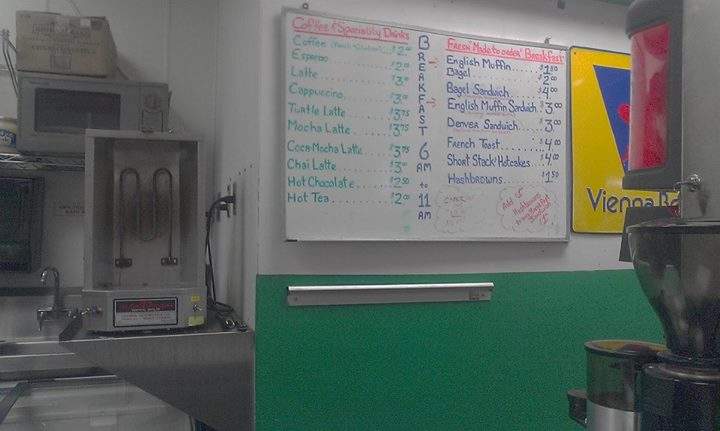 Coffee & Speciality Drinks
Coffee $2.00
Espresso $2.00
Latte $3.00
Cappuccino $3.00
Turtle Latte $3.75
Mocha Latte $3.75
Coco-Mocha Latte $3.75
Chai Latte $3.00
Hot Chocolate $2.50
Hot Tea $2.00
BREAKFAST
6
AM
to
11
AM
Fresh "Made to order" Breakfast
English Muffin $1.50
Bagel $2.00
Bagel Sandwich $4.00
English Muffin Sandwich $3.00
Denver Sandwich $3.00
French Toast $4.00
Short Stack Hotcakes $4.00
Hashbrowns $1.50
Add
Hashbrowns
Vienna